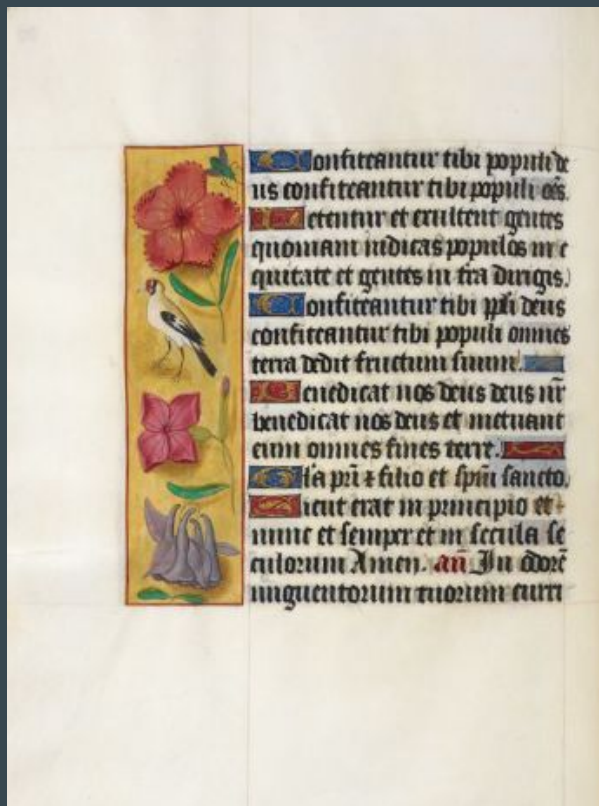 Confiteantur tibi populi de
us confiteantur tibi populi oẽs.
Letentur et exultent gentes
quoniam iudicas populos in e
quitate et gentes in tr̃a dirigis.
Confiteantur tibi pp̃li deus
confiteantur tibi populi omnes
terra dedit fructum suum.
Benedicat nos deus deus nr̃
benedicat nos deus et metuant
eum omnes fines terre.
Gl̃a pr̃i ⁊ filio et spũi sancto.
Sicut erat in principio et
nunc et semper et in secula se
culorum Amen. añ In odorẽ
unguentorum tuorum curri